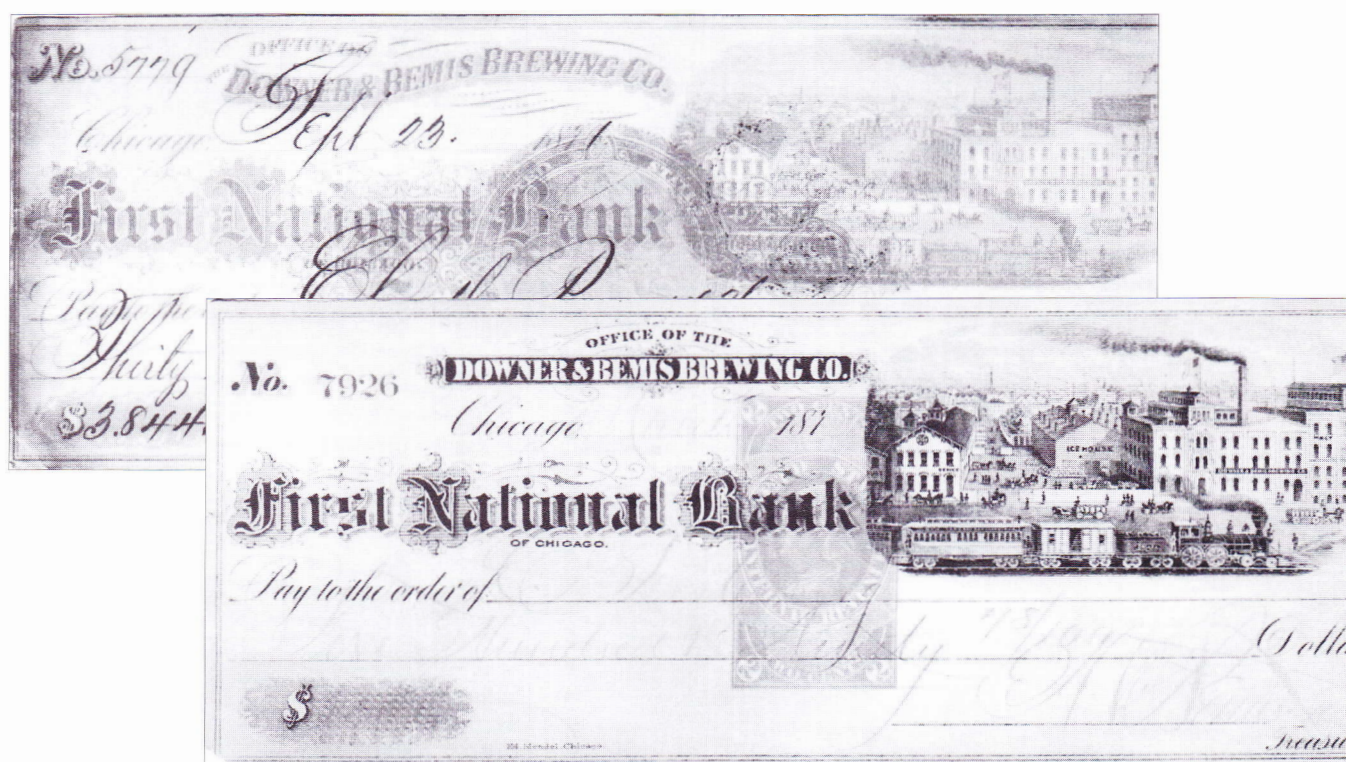 No. 5779
OFFICE OF
THE DOWNER & BEMIS BREWING CO.
Chicago Sept 23. 1871
First National Bank
OF CHICAGO.
Pay to the
Thirty
$3.844.
OFFICE OF THE
No. 7926 DOWNER & BEMIS BREWING CO.
Chicago, 187
ICE HOUSE
First National Bank
OF CHICAGO.
Pay to the order of
Dolla
$
Ed. Mendel, Chicago
Treasu